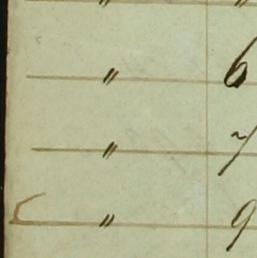 " "
" 6
" 7
" 9